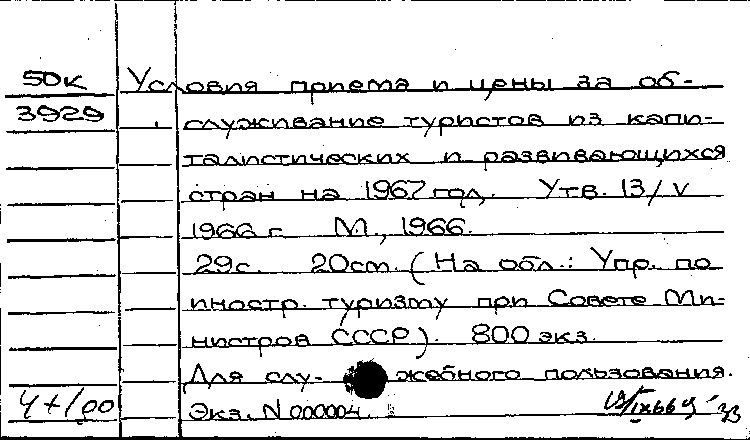 50К
3929
Условия приема и цены за об-
служивание туристов из капи-
талистических и развивающихся
стран на 1967 год. Утв. 13/V
1966 г. М., 1966.
29с. 20см. (На обл.: Упр. по
иностр. туризму при Совете Ми-
нистров СССР). 800 экз.
Для слу- жебного пользования.
Экз. N 000004.
4+1/00